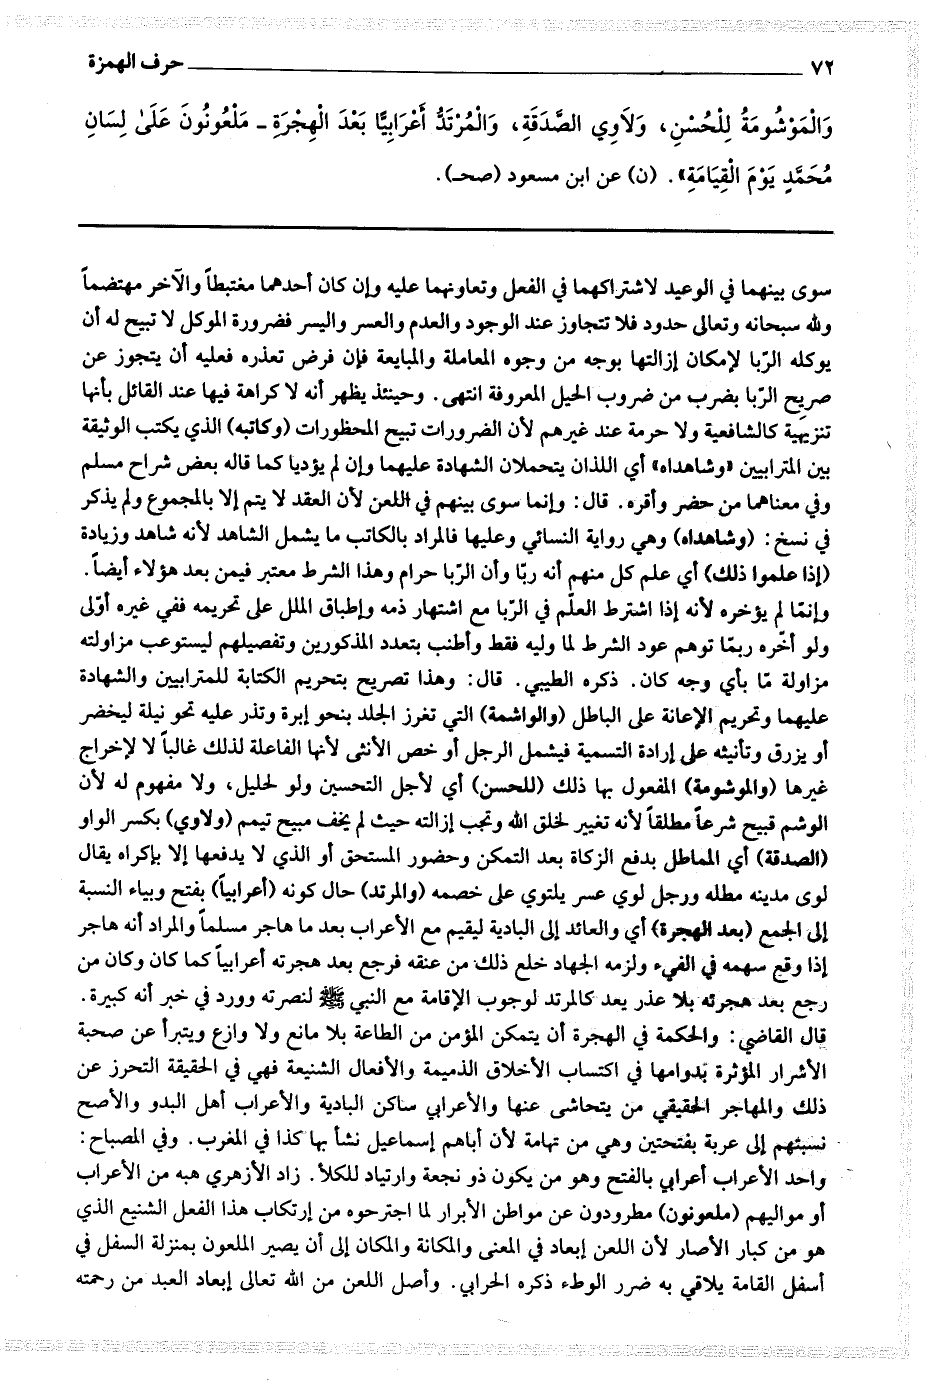 ٧٢ حرف الهمزة
وَالْمَوْشُومَةُ لِلْحُسْنِ، وَلَاوِي الصَّدَقَةِ، وَالْمُرْتَدُّ أَعْرَابِيًّا بَعْدَ الْهِجْرَةِ ـ مَلْعُونُونَ عَلَىٰ لِسَانِ
مُحَمَّدٍ يَوْمَ الْقِيَامَةِ». (ن) عن ابن مسعود (صحـ).
سوى بينهما في الوعيد لاشتراكهما في الفعل وتعاونهما عليه وإن كان أحدهما مغتبطاً والآخر مهتضماً
ولله سبحانه وتعالى حدود فلا تتجاوز عند الوجود والعدم والعسر واليسر فضرورة الموكل لا تبيح له أن
يوكله الرّبا لإمكان إزالتها بوجه من وجوه المعاملة والمبايعة فإن فرض تعذره فعليه أن يتجوز عن
صريح الرّبا بضرب من ضروب الحيل المعروفة انتهى. وحينئذ يظهر أنه لا كراهة فيها عند القائل بأنها
تنزيهية كالشافعية ولا حرمة عند غيرهم لأن الضرورات تبيح المحظورات (وكاتبه) الذي يكتب الوثيقة
بين المترابيين «وشاهداه» أي اللذان يتحملان الشهادة عليهما وإن لم يؤديا كما قاله بعض شراح مسلم
وفي معناهما من حضر وأقره. قال: وإنما سوى بينهم في اللعن لأن العقد لا يتم إلا بالمجموع ولم يذكر
في نسخ: (وشاهداه) وهي رواية النسائي وعليها فالمراد بالكاتب ما يشمل الشاهد لأنه شاهد وزيادة
(إذا علموا ذلك) أي علم كل منهم أنه ربّا وأن الرّبا حرام وهذا الشرط معتبر فيمن بعد هؤلاء أيضاً.
وإنمّا لم يؤخره لأنه إذا اشترط العلّم في الرّبا مع اشتهار ذمه وإطباق الملل على تحريمه ففي غيره أوّلى
ولو أخّره ربمّا توهم عود الشرط لما وليه فقط وأطنب بتعدد المذكورين وتفصيلهم ليستوعب مزاولته
مزاولة مّا بأي وجه كان. ذكره الطيبي. قال: وهذا تصريح بتحريم الكتابة للمترابيين والشهادة
عليهما وتحريم الإعانة على الباطل (والواشمة) التي تغرز الجلد بنحو إبرة وتذر عليه نحو نيلة ليخضر
أو يزرق وتأنيثه على إرادة التسمية فيشمل الرجل أو خص الأنثى لأنها الفاعلة لذلك غالباً لا لإخراج
غيرها (والموشومة) المفعول بها ذلك (للحسن) أي لأجل التحسين ولو لحليل، ولا مفهوم له لأن
الوشم قبيح شرعاً مطلقاً لأنه تغيير لخلق الله وتجب إزالته حيث لم يخف مبيح تيمم (ولاوي) بكسر الواو
(الصدقة) أي المماطل بدفع الزكاة بعد التمكن وحضور المستحق أو الذي لا يدفعها إلا بإكراه يقال
لوى مدينه مطله ورجل لوي عسر يلتوي على خصمه (والمرتد) حال كونه (أعرابياً) بفتح وبياء النسبة
إلى الجمع (بعد الهجرة) أي والعائد إلى البادية ليقيم مع الأعراب بعد ما هاجر مسلماً والمراد أنه هاجر
إذا وقع سهمه في الفيء ولزمه الجهاد خلع ذلك من عنقه فرجع بعد هجرته أعرابياً كما كان وكان من
رجع بعد هجرته بلا عذر يعد كالمرتد لوجوب الإقامة مع النبي ﷺ لنصرته وورد في خبر أنه كبيرة.
قال القاضي: والحكمة في الهجرة أن يتمكن المؤمن من الطاعة بلا مانع ولا وازع ويتبرأ عن صحبة
الأشرار المؤثرة بدوامها في اكتساب الأخلاق الذميمة والأفعال الشنيعة فهي في الحقيقة التحرز عن
ذلك والمهاجر الحقيقي من يتحاشى عنها والأعرابي ساكن البادية والأعراب أهل البدو والأصح
نسبتهم إلى عربة بفتحتين وهي من تهامة لأن أباهم إسماعيل نشأ بها كذا في المغرب. وفي المصباح:
واحد الأعراب أعرابي بالفتح وهو من يكون ذو نجعة وارتياد للكلأ. زاد الأزهري هبه من الأعراب
أو مواليهم (ملعونون) مطرودون عن مواطن الأبرار لما اجترحوه من إرتكاب هذا الفعل الشنيع الذي
هو من كبار الأصار لأن اللعن إبعاد في المعنى والمكانة والمكان إلى أن يصير الملعون بمنزلة السفل في
أسفل القامة يلاقي به ضرر الوطء ذكره الحرابي. وأصل اللعن من الله تعالى إبعاد العبد من رحمته